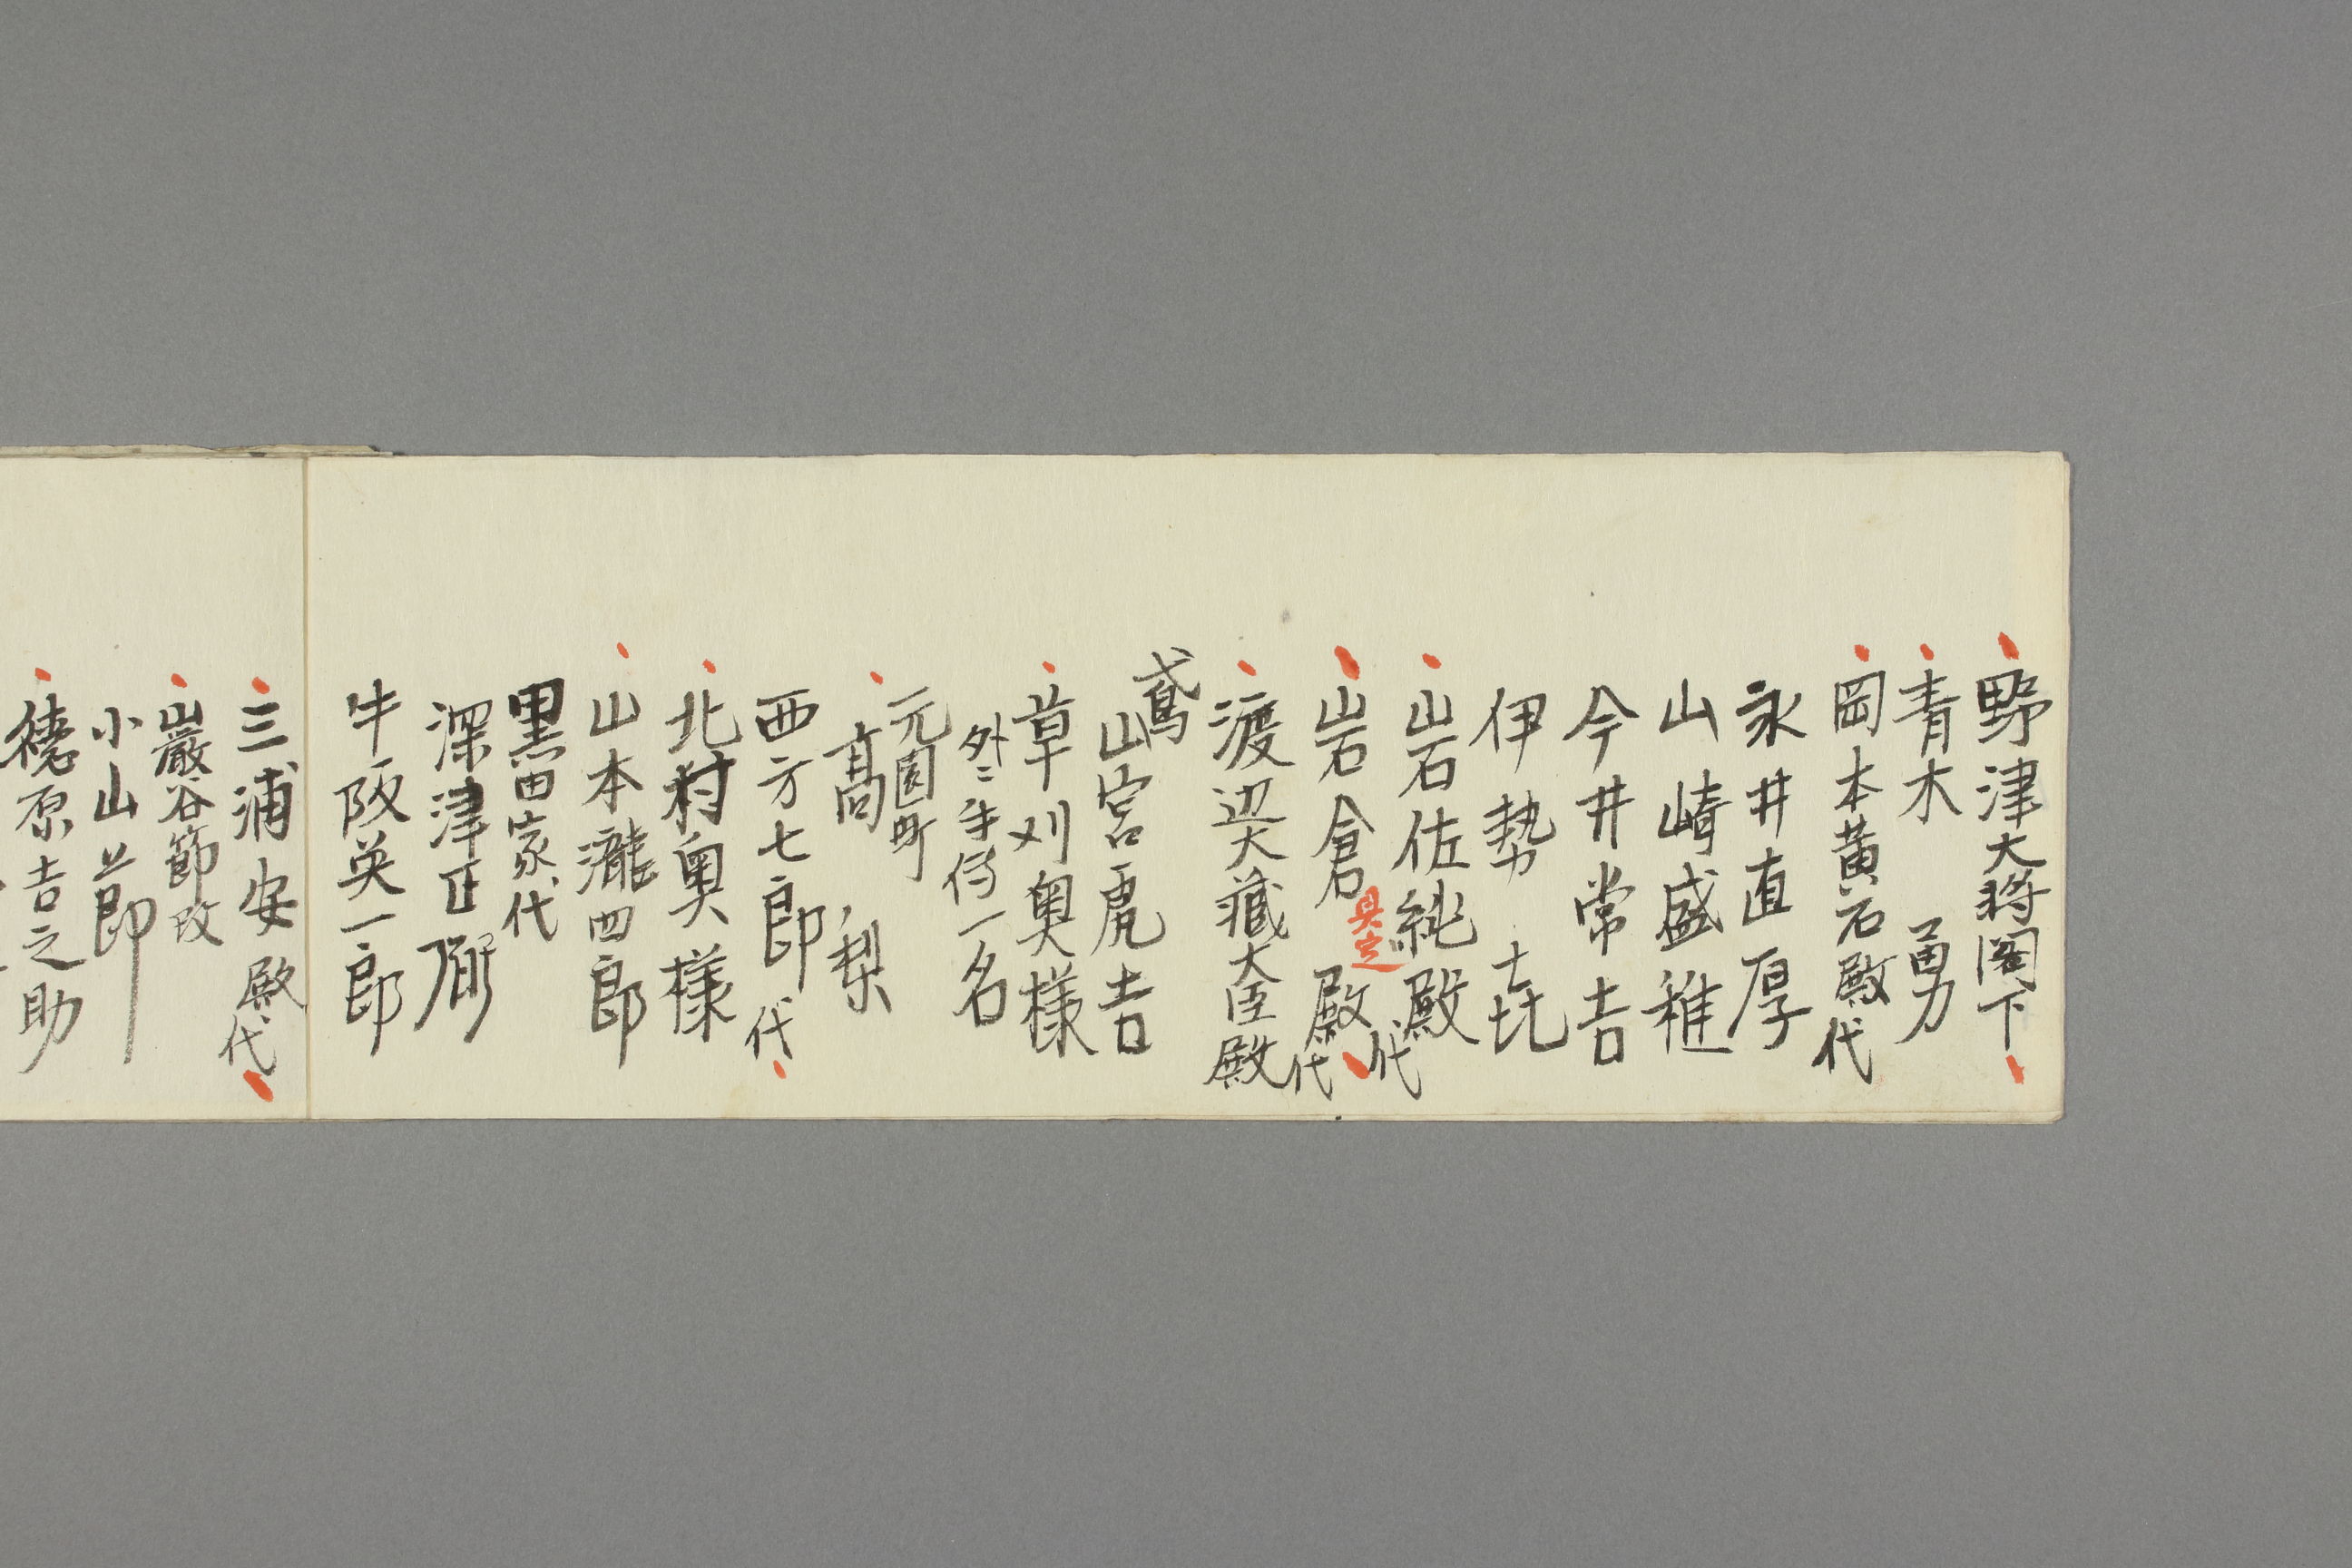 野津大将閣下
青木　勇
岡本黄石殿代
永井直厚
山崎盛稚
今井常吉
伊勢㐂
岩佐純殿代
岩倉具定殿代
渡辺大蔵大臣殿
鳶
山宮虎吉
草刈奥様
外ニ手傳一名
元園町
高梨
西方七郎代
北村奥様
山本瀧四郎
黒田家代
深津正
牛阪英一郎
三浦安殿代
巌谷節改
小山節
原吉之助